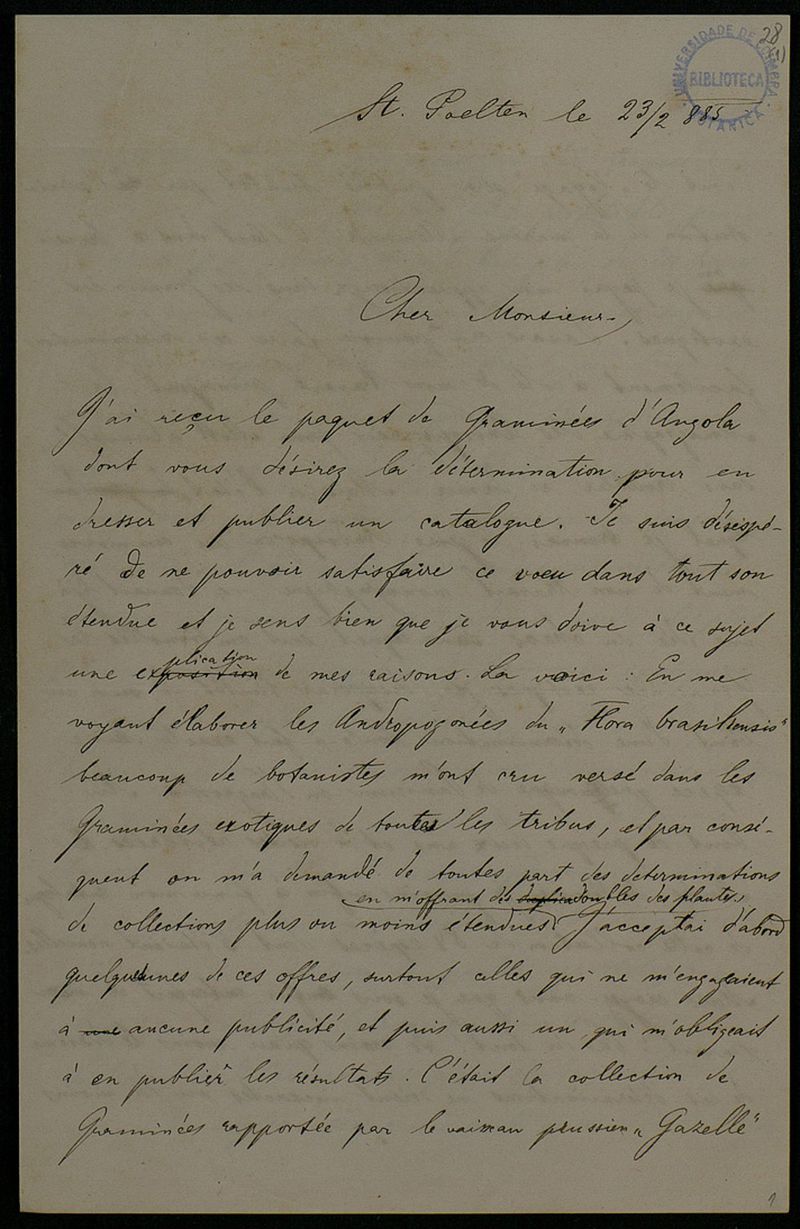 28
(1)
UNIVERSIDADE DE COIMBRA
BIBLIOTECA
BOTANICA
St. Poelten le 23/2 885
Cher Monsieur
J'ai reçu le paquet de Graminées d'Angola
dont vous désirez la détermination pour en
dresser et publier un catalogue. Je suis désespé-
ré de ne pouvoir satisfaire ce voeu dans tout son
étendue et je sens bien que je vous doive à ce sujet
une explication de mes raisons. La voici : En me
voyant élaborer les Andropogonées du „Flora brasiliensis"
beaucoup de botanistes m'ont cru versé dans les
Graminées exotiques de toutes les tribus, et par consé-
quent on m'a demandé de toutes part des determinations
en m'offrant des doubles des plantes,
de collections plus ou moins étendues. J'acceptai d'abord
quelquesunes de ces offres, surtout celles qui ne m'engageaient
à une aucune publicité, et puis aussi un qui m'obligeait
à en publier les résultats. C'était la collection de
Graminées rapportée par le vaisseau prussien „Gazelle"
1